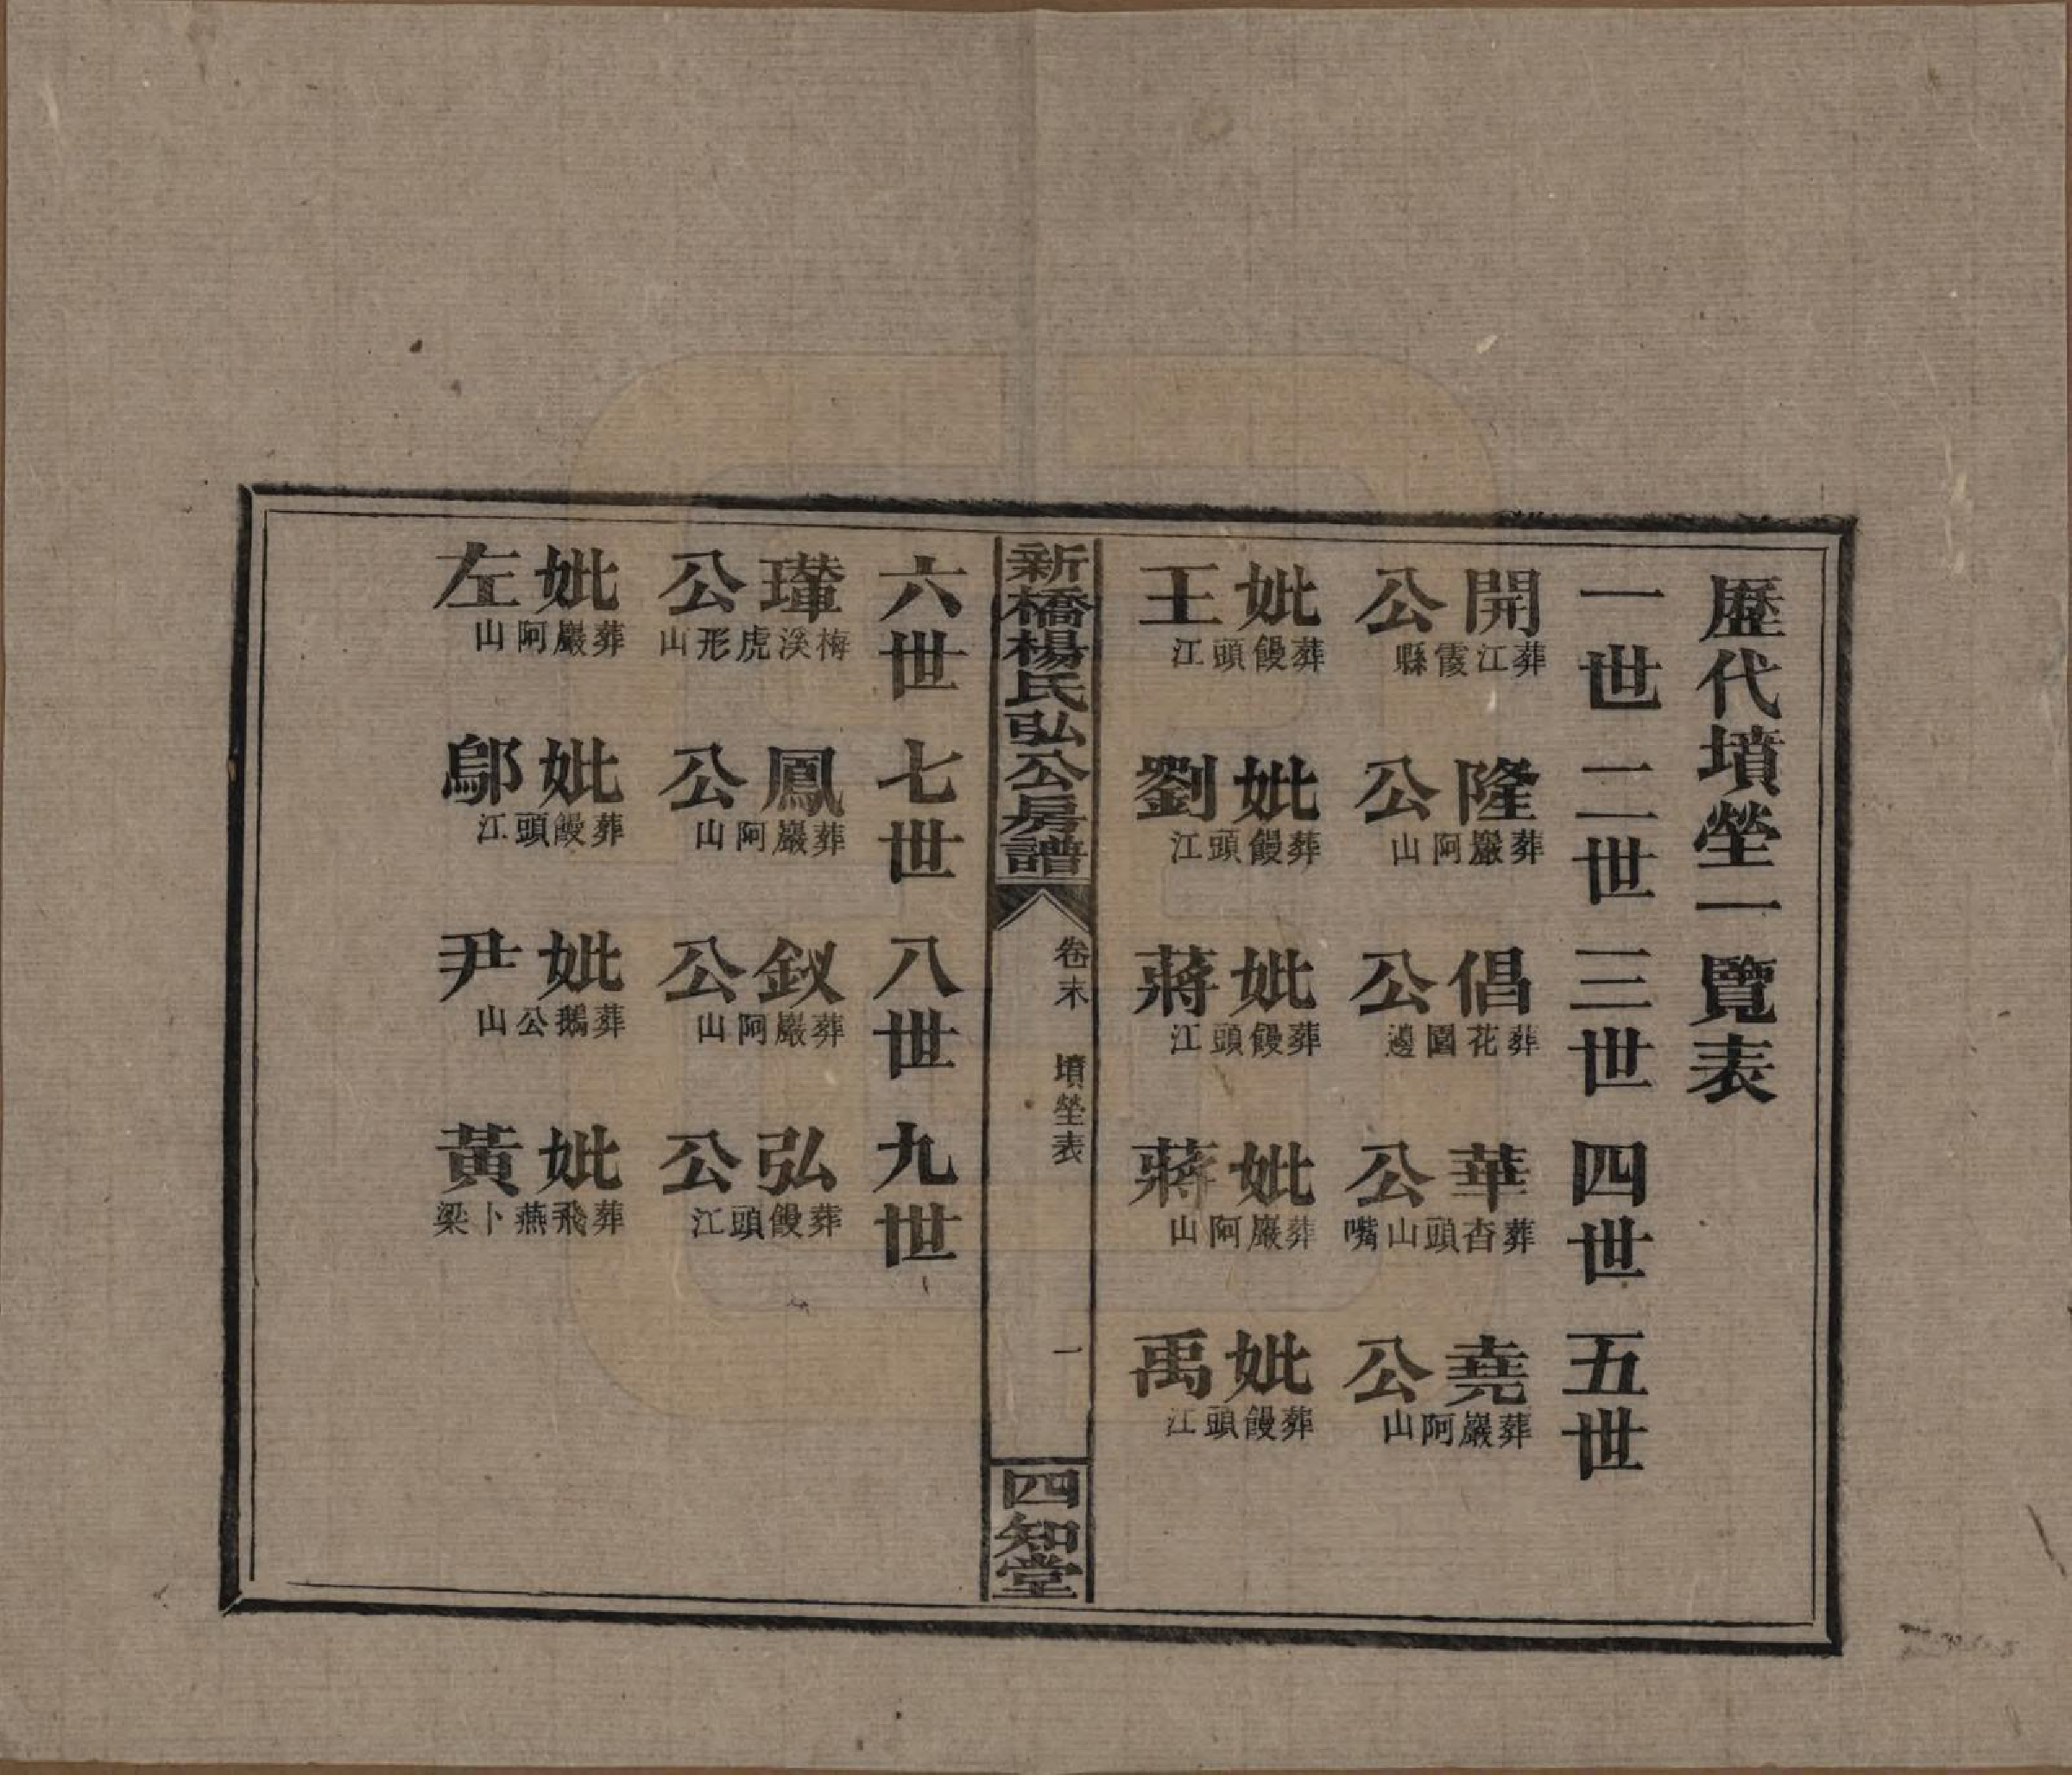 歷代墳塋一覽表
一世 二世 三世 四世 五世
開公 葬江霞縣
妣王 葬饅頭江
隆公 葬巖阿山
妣劉 葬饅頭江
倡公 葬花園邊
妣蔣 葬饅頭江
華公 葬杳頭山嘴
妣蔣 葬巖阿山
堯公 葬巖阿山
妣禹 葬饅頭江
新橋楊氏弘公房譜
卷末 墳塋表 一
四知堂
六世 七世 八世 九世
公 梅溪虎形山
妣左 葬巖阿山
鳳公 葬巖阿山
妣鄔 葬饅頭江
釵公 葬巖阿山
妣尹 葬鵝公山
弘公 葬饅頭江
妣黃 葬飛燕卜梁